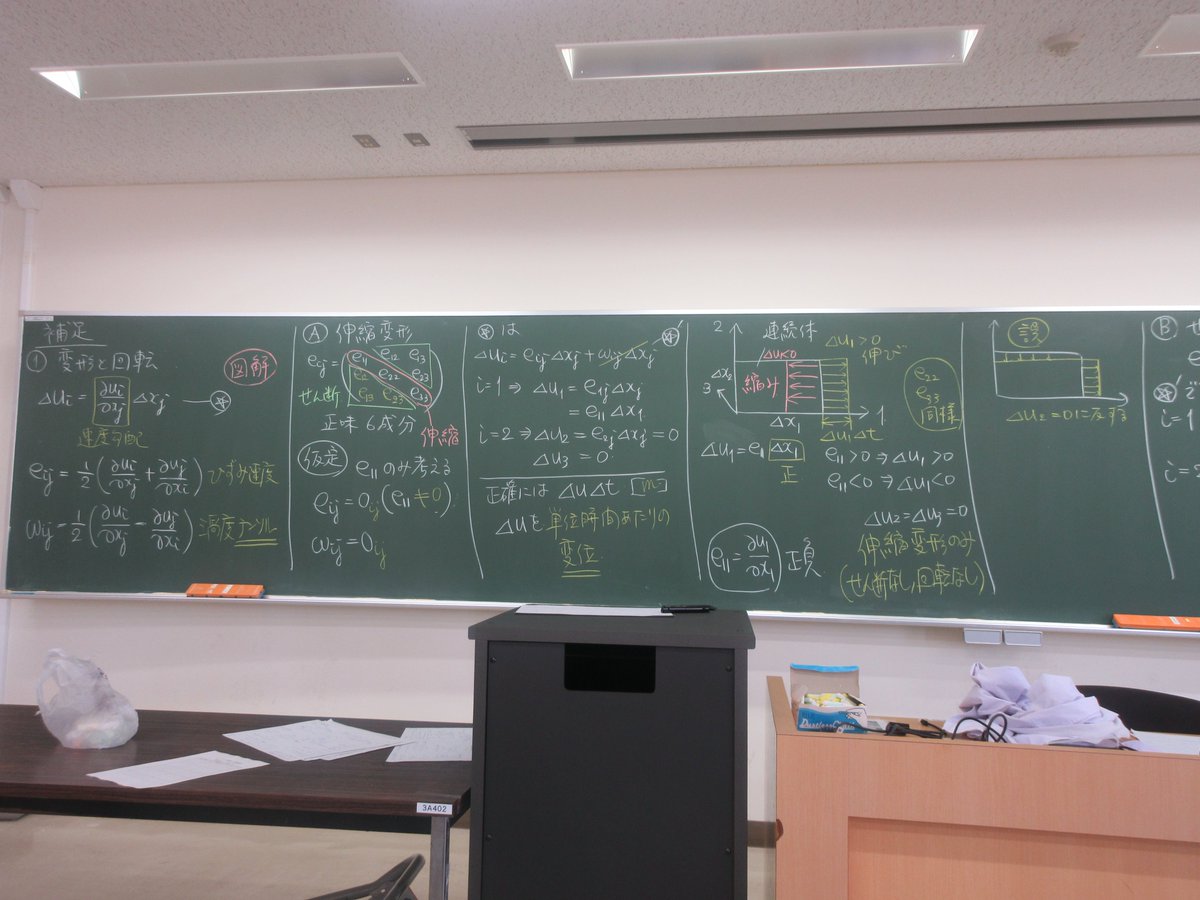 補足
① 変形と回転
図解
Δui = ∂ui/∂xj Δxj —☆
速度勾配
eij = 1/2 (∂ui/∂xj + ∂uj/∂xi) ひずみ速度
ωij = 1/2 (∂ui/∂xj − ∂uj/∂xi) 渦度テンソル
Ⓐ 伸縮変形
eij =
e11 e12 e13
e12 e22 e23
e13 e23 e33
せん断
正味6成分
伸縮
仮定
e11のみ考える
eij = 0ij (e11 ≠ 0)
ωij = 0ij
☆は
☆'
Δui = eij Δxj + ωij Δxj
i=1 ⇒ Δu1 = e1j Δxj
= e11 Δx1
i=2 ⇒ Δu2 = e2j Δxj = 0
Δu3 = 0
正確には Δu Δt [m]
Δuを単位時間あたりの
変位
2
連続体
Δu1<0
Δu1>0
伸び
Δx2
縮み
3
1
Δx1
Δu1Δt
e22
e33
同様
Δu1 = e11 Δx1
正
e11>0 ⇒ Δu1>0
e11<0 ⇒ Δu1<0
Δu2 = Δu3 = 0
e11 = ∂u1/∂x1 正負
伸縮変形のみ
(せん断なし, 回転なし)
誤
Δu2 = 0に反する
Ⓑ
☆'
i=1
i=2
3A402
Dustless